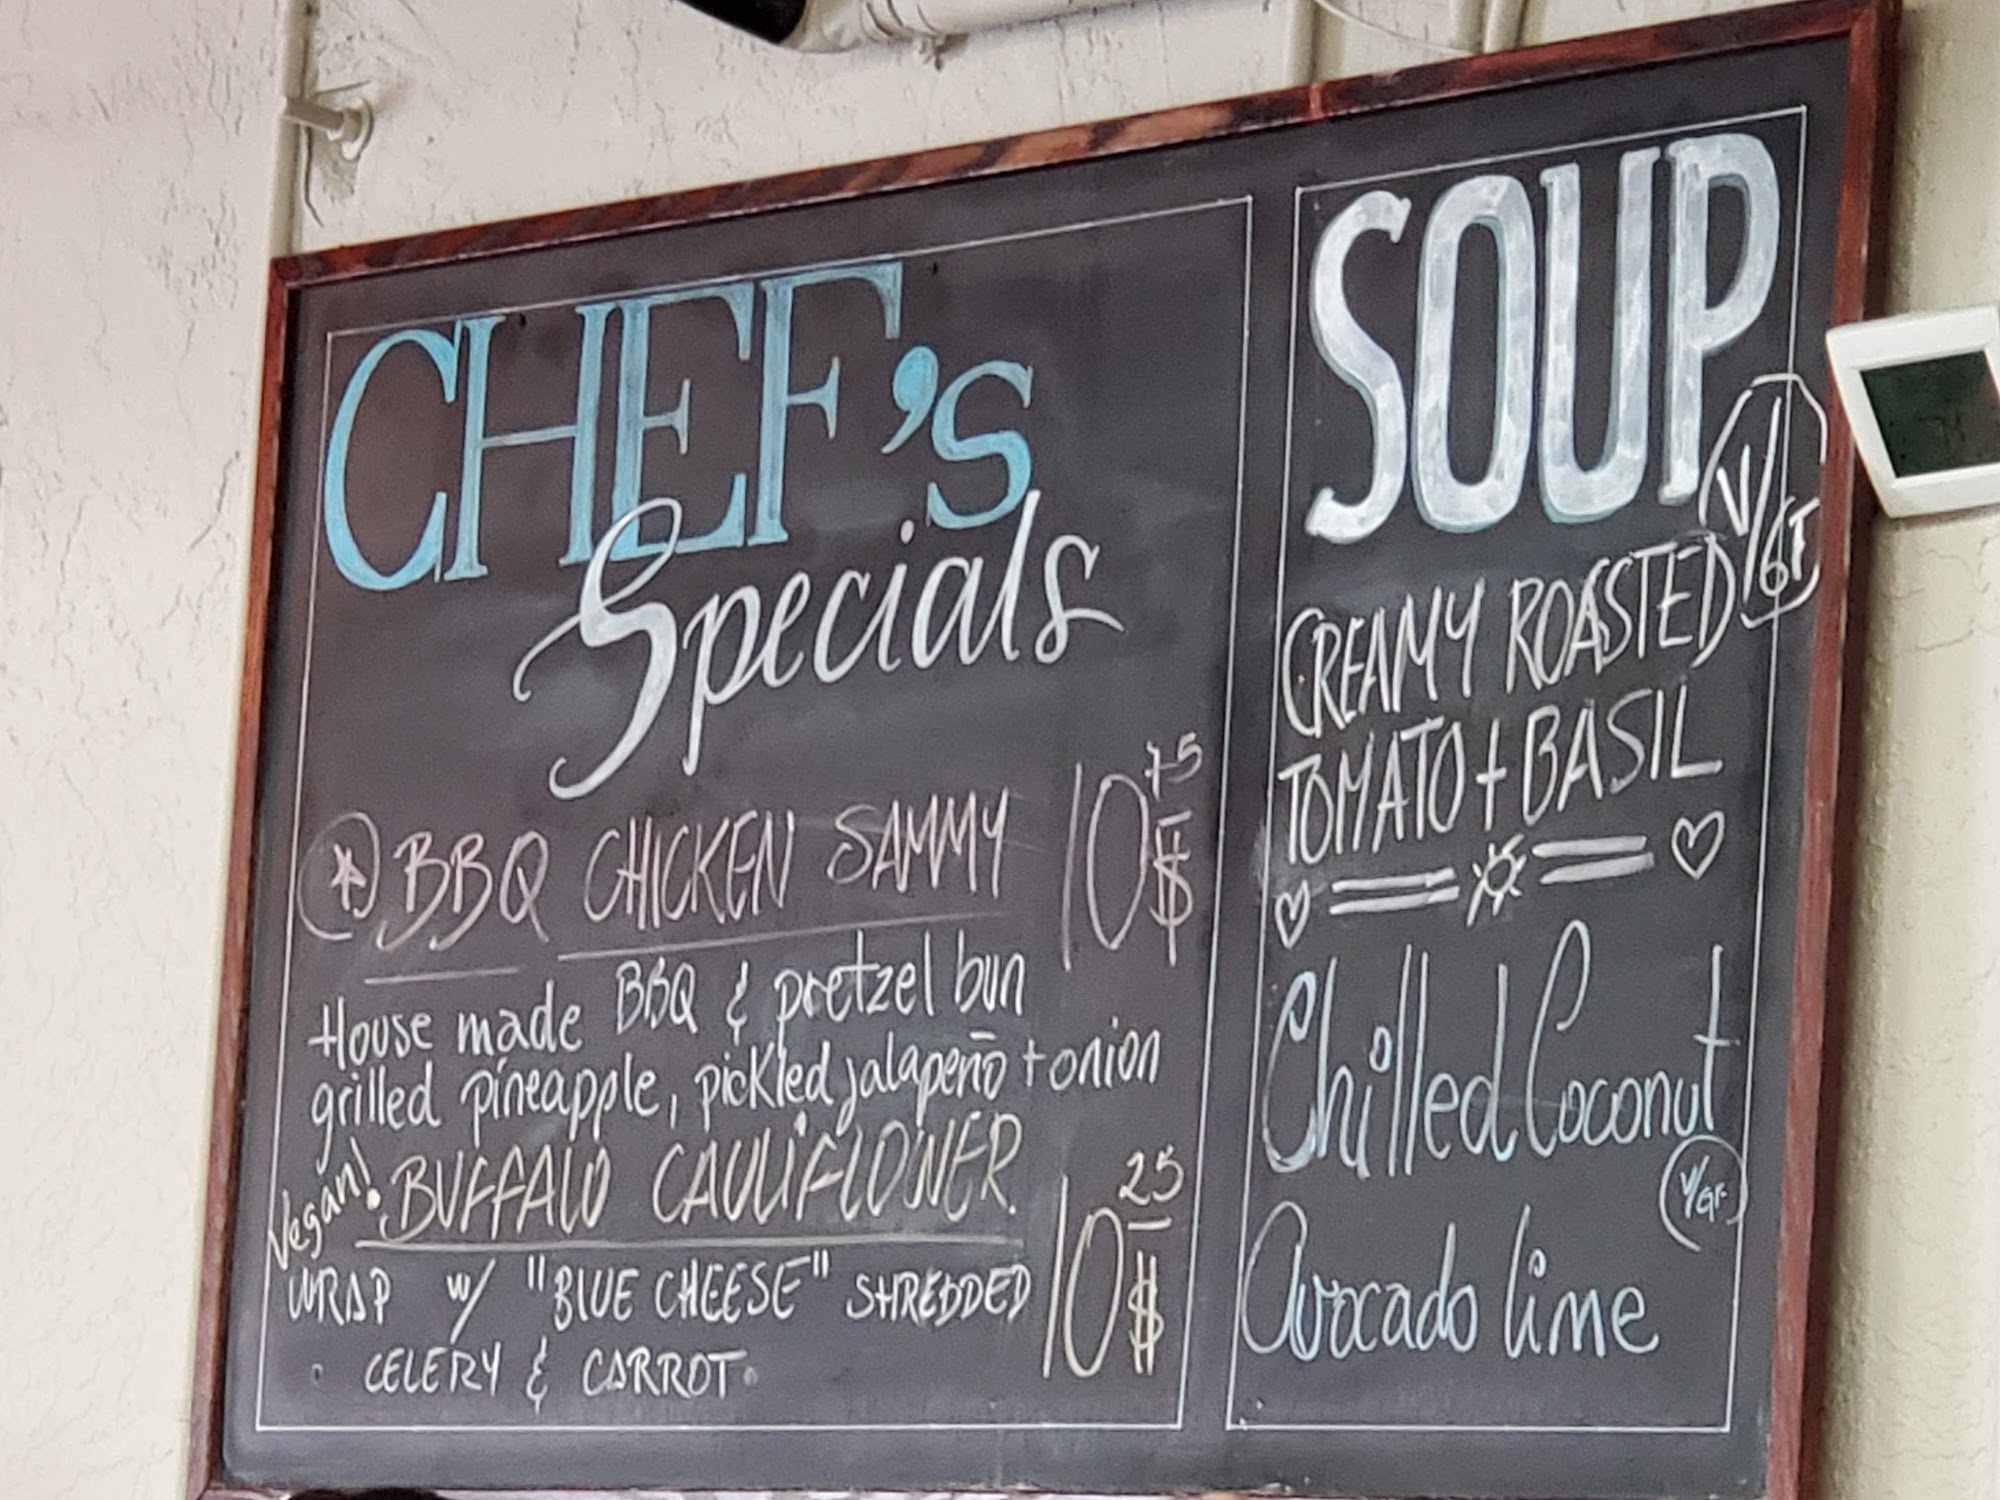 CHEF's
Specials
BBQ CHICKEN SAMMY 10 75 $
House made BBQ & pretzel bun
grilled pineapple, pickled jalapeño + onion
Vegan! BUFFALO CAULIFLOWER
WRAP w/ "BLUE CHEESE" SHREDDED 10 25 $
CELERY & CARROT.
SOUP
V/GF
CREAMY ROASTED
TOMATO + BASIL
Chilled Coconut
V/GF
Avocado lime